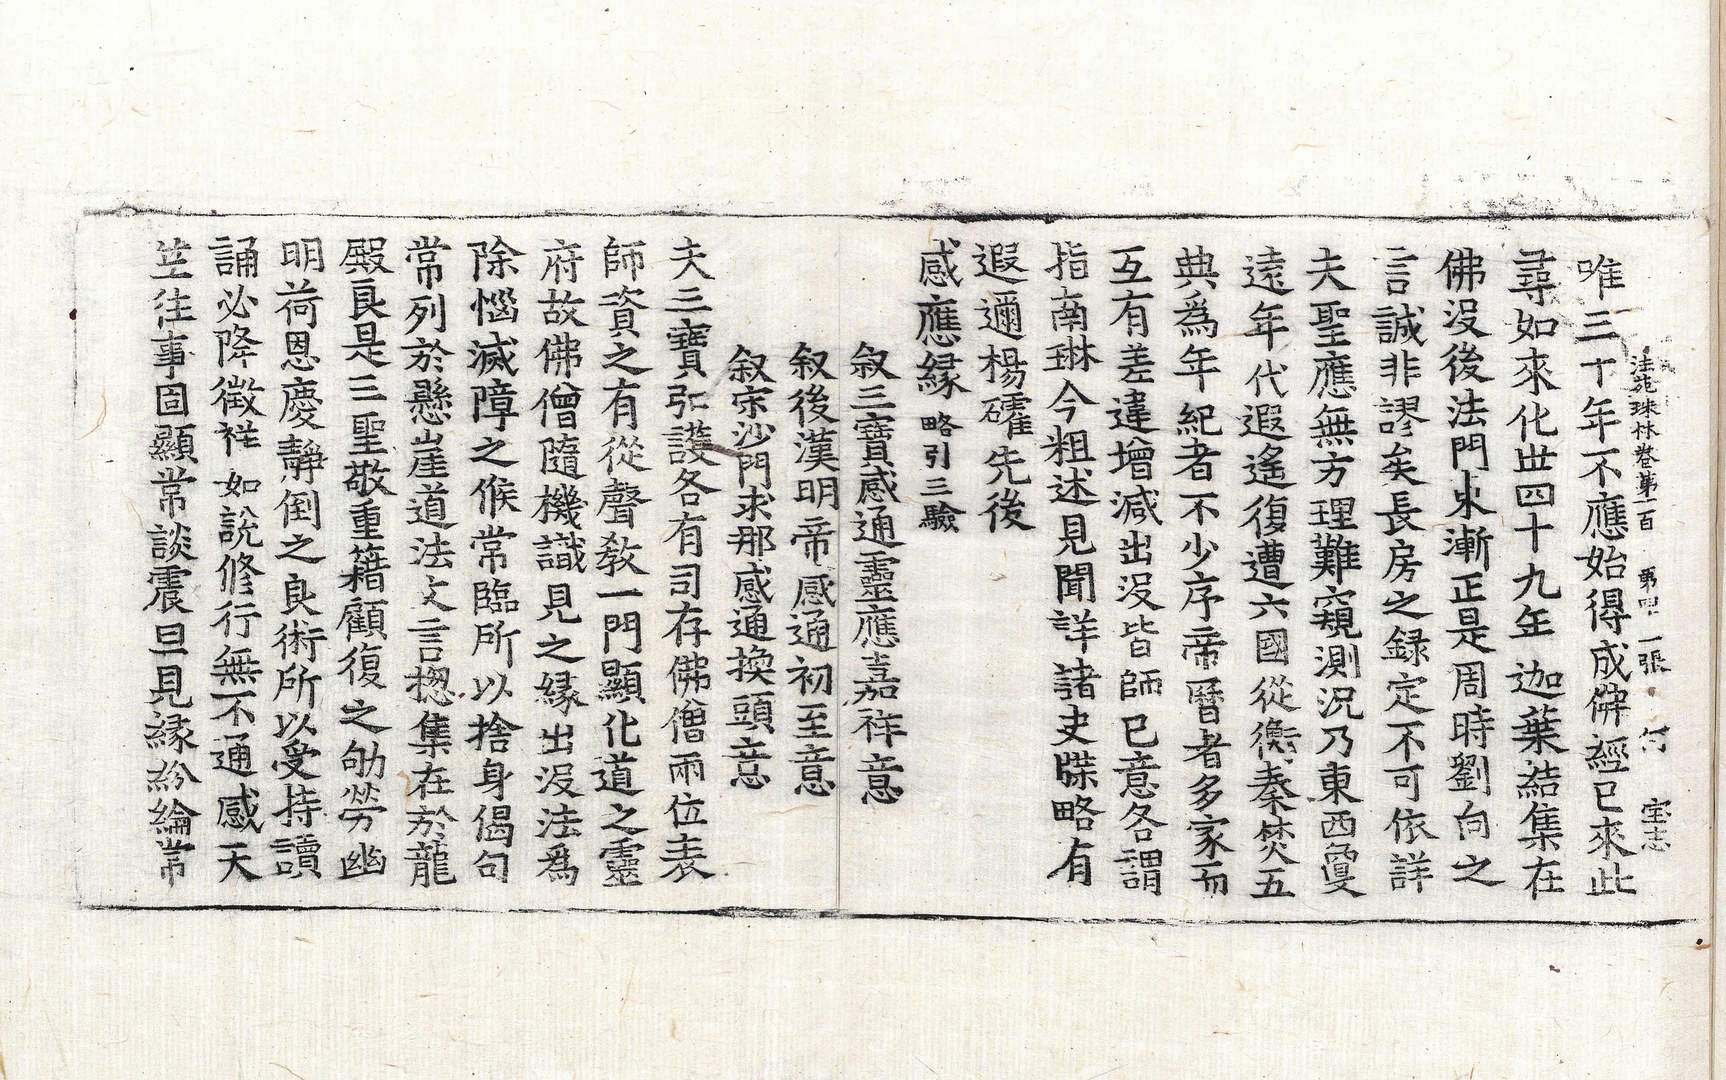 法苑珠林卷第一百 第四一張 付 宝志
唯三十年不應始得成佛經已來此
尋如來化世四十九年迦葉結集在
佛没後法門東漸正是周時劉向之
言誠非謬矣長房之録定不可依詳
夫聖應無方理難窺測況乃東西敻
遠年代遐遙復遭六國從衡秦焚五
典爲年紀者不少序帝曆者多家而
互有差違增減出没皆師已意各謂
指南琳今粗述見聞詳諸史牒略有
遐邇楊㩁先後
感應縁 略引三驗
叙三寶感通靈應嘉祥意
叙後漢明帝感通初至意
叙宋沙門求那感通換頭意
夫三寶弘護各有司存佛僧兩位表
師資之有從聲教一門顯化道之靈
府故佛僧隨機識見之縁出没法爲
除惱滅障之候常臨所以捨身偈句
常列於懸崖道法文言揔集在於龍
殿良是三聖敬重籍顧復之劬勞幽
明荷恩慶靜倒之良術所以受持讀
誦必降徵祥如説修行無不通感天
竺往事固顯常談震旦見縁紛綸常